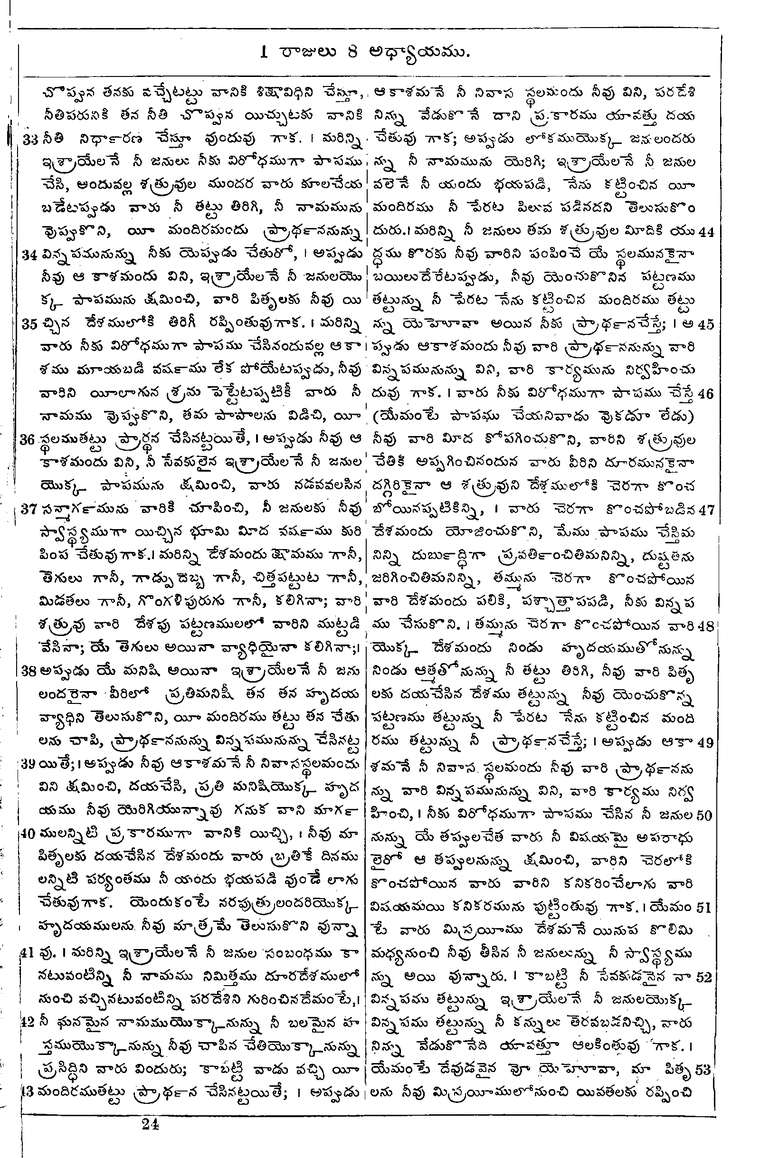 1 రాజులు 8 అధ్యాయము.
చొప్పున తనకు వచ్చేటట్టు వానికి శిక్షావిధిని చేస్తూ,
నీతిపరునికి తన నీతి చొప్పున యిచ్చుటకు వానికి
33 నీతి నిర్ధారణ చేస్తూ వుందువు గాక. । మరిన్ని
ఇశ్రాయేలనే నీ జనులు నీకు విరోధముగా పాపము
చేసి, అందువల్ల శత్రువుల ముందర వారు కూలచేయ
బడేటప్పుడు వారు నీ తట్టు తిరిగి, నీ నామమును
వొప్పుకొని, యీ మందిరమందు ప్రార్థననున్ను
34 విన్నపమునున్ను నీకు యెప్పుడు చేతురో, । అప్పుడు
నీవు ఆ కాశమందు విని, ఇశ్రాయేలనే నీ జనులయొ
క్క పాపమును క్షమించి, వారి పితృలకు నీవు యి
35 చ్చిన దేశములోకి తిరిగీ రప్పింతువుగాక. । మరిన్ని
వారు నీకు విరోధముగా పాపము చేసినందువల్ల ఆకా
శము మూయబడి వర్షము లేక పోయేటప్పుడు, నీవు
వారిని యీలాగున శ్రమ పెట్టేటప్పటికీ వారు నీ
నామము వొప్పుకొని, తమ పాపాలను విడిచి, యీ
36 స్థలముతట్టు ప్రార్థన చేసినట్టయితే, । అప్పుడు నీవు ఆ
కాశమందు విని, నీ సేవకులైన ఇశ్రాయేలనే నీ జనుల
యొక్క పాపమును క్షమించి, వారు నడవవలసిన
37 సన్మార్గమును వారికి చూపించి, నీ జనులకు నీవు
స్వాస్థ్యముగా యిచ్చిన భూమి మీద వర్షము కురి
పింప చేతువుగాక. । మరిన్ని దేశమందు క్షామము గానీ,
తెగులు గానీ, గాడ్పుదెబ్బ గానీ, చిత్తపట్టుట గానీ,
మిడతలు గానీ, గొంగళిపురుగు గానీ, కలిగినా; వారి
శత్రువు వారి దేశపు పట్టణములలో వారిని ముట్టడి
వేసినా; యే తెగులు అయినా వ్యాధియైనా కలిగినా;।
38 అప్పుడు యే మనిషి అయినా ఇశ్రాయేలనే నీ జను
లందరైనా వీరిలో ప్రతిమనిషీ తన తన హృదయ
వ్యాధిని తెలుసుకొని, యీ మందిరము తట్టు తన చేతు
లను చాపి, ప్రార్థననున్ను విన్నపమునున్ను చేసినట్ట
39 యితే; । అప్పుడు నీవు ఆకాశమనే నీ నివాసస్థలమందు
విని క్షమించి, దయచేసి, ప్రతి మనిషియొక్క హృద
యము నీవు యెరిగియున్నావు గనుక వాని మార్గ
40 ములన్నిటి ప్రకారముగా వానికి యిచ్చి, । నీవు మా
పితృలకు దయచేసిన దేశమందు వారు బ్రతికే దినము
లన్నిటి పర్యంతము నీ యందు భయపడి వుండే లాగు
చేతువుగాక. యెందుకంటే నరపుత్రులందరియొక్క
హృదయములను నీవు మాత్రమే తెలుసుకొని వున్నా
41 వు. । మరిన్ని ఇశ్రాయేలనే నీ జనుల సంబంధము కా
నటువంటిన్ని నీ నామము నిమిత్తము దూరదేశములో
నుంచి వచ్చినటువంటిన్ని పరదేశిని గురించినదేమంటే,।
42 నీ ఘనమైన నామముయొక్కానున్ను నీ బలమైన హ
స్తముయొక్కానున్ను నీవు చాపిన చేతియొక్కానున్ను
ప్రసిద్ధిని వారు విందురు; కాబట్టి వాడు వచ్చి యీ
43 మందిరముతట్టు ప్రార్థన చేసినట్టయితే; । అప్పుడు
ఆకాశమనే నీ నివాస స్థలమందు నీవు విని, పరదేశి
నిన్ను వేడుకొనే దాని ప్రకారము యావత్తు దయ
చేతువు గాక; అప్పుడు లోకముయొక్క జనులందరు
న్ను నీ నామమును యెరిగి; ఇశ్రాయేలనే నీ జనుల
వలెనే నీ యందు భయపడి, నేను కట్టించిన యీ
మందిరము నీ పేరట పిలువ పడినదని తెలుసుకొం
దురు. । మరిన్ని నీ జనులు తమ శత్రువుల మీదికి యు 44
ద్ధము కొరకు నీవు వారిని పంపించే యే స్థలమునకైనా
బయిలుదేరేటప్పుడు, నీవు యెంచుకొనిన పట్టణము
తట్టున్ను నీ పేరట నేను కట్టించిన మందిరము తట్టు
న్ను యెహోవా అయిన నీకు ప్రార్థనచేస్తే; । అ 45
ప్పుడు ఆకాశమందు నీవు వారి ప్రార్థననున్ను వారి
విన్నపమునున్ను విని, వారి కార్యమును నిర్వహించు
దువు గాక. । వారు నీకు విరోధముగా పాపము చేస్తే 46
(యేమంటే పాపము చేయనివాడు వొకడూ లేడు)
నీవు వారి మీద కోపగించుకొని, వారిని శత్రువుల
చేతికి అప్పగించినందున వారు వీరిని దూరమునకైనా
దగ్గిరికైనా ఆ శత్రువుని దేశములోకి చెరగా కొంచ
బోయినప్పటికిన్ని, । వారు చెరగా కొంచపోబడిన 47
దేశమందు యోజించుకొని, మేము పాపము చేస్తిమ
నిన్ని దుర్బుద్ధిగా ప్రవర్తించితిమనిన్ని, దుష్టతను
జరిగించితిమనిన్ని, తమ్మును చెరగా కొంచపోయిన
వారి దేశమందు పలికి, పశ్చాత్తాపపడి, నీకు విన్నప
ము చేసుకొని. । తమ్మును చెరగా కొంచపోయిన వారి 48
యొక్క దేశమందు నిండు హృదయముతోనున్ను
నిండు ఆత్మతోనున్ను నీ తట్టు తిరిగి, నీవు వారి పితృ
లకు దయచేసిన దేశము తట్టున్ను నీవు యెంచుకొన్న
పట్టణము తట్టున్ను నీ పేరట నేను కట్టించిన మంది
రము తట్టున్ను నీ ప్రార్థనచేస్తే; । అప్పుడు ఆకా 49
శమనే నీ నివాస స్థలమందు నీవు వారి ప్రార్థనను
న్ను వారి విన్నపమునున్ను విని, వారి కార్యము నిర్వ
హించి, । నీకు విరోధముగా పాపము చేసిన నీ జనుల 50
నున్ను యే తప్పులచేత వారు నీ విషయమై అపరాధు
లైరో ఆ తప్పులనున్ను క్షమించి, వారిని చెరలోకి
కొంచపోయిన వారు వారిని కనికరించేలాగు వారి
విషయమయి కనికరమును పుట్టింతువు గాక. । యేమం 51
టే వారు మిస్రయీము దేశమనే యినుప కొలిమి
మధ్యనుంచి నీవు తీసిన నీ జనులున్ను నీ స్వాస్థ్యము
న్ను అయి వున్నారు. । కాబట్టి నీ సేవకుడనైన నా 52
విన్నపము తట్టున్ను ఇశ్రాయేలనే నీ జనులయొక్క
విన్నపము తట్టున్ను నీ కన్నులు తెరవబడనిచ్చి, వారు
నిన్ను వేడుకొనేది యావత్తూ ఆలకింతువు గాక. ।
యేమంటే దేవుడవైన వో యెహోవా, మా పితృ 53
లను నీవు మిస్రయీములోనుంచి యివతలకు రప్పించి
24